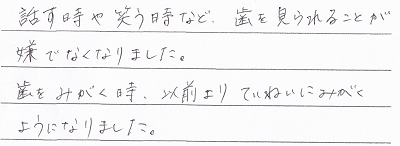 話す時や笑う時など、歯を見られることが
嫌でなくなりました。
歯をみがく時、以前よりていねいにみがく
ようになりました。